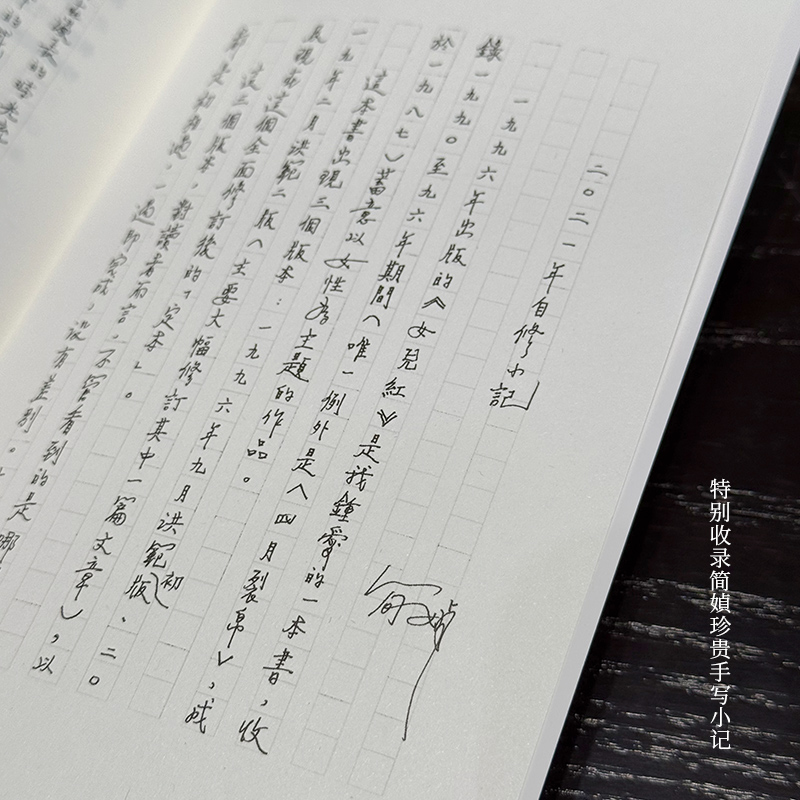 二〇二一年自修小記
簡媜
一九九六年出版的《女兒紅》是我鍾愛的一本書，收
錄一九九〇至九六年期間（唯一例外是〈四月裂帛〉，成
於一九八七）蓄意以女性為主題的作品。
這本書出現三個版本：一九九六年九月洪範初版、二〇
一九年二月洪範二版（主要大幅修訂其中一篇文章），以
及現在這個全面修訂後的「定本」。
這三個版本，對讀者而言，不管看到的是哪
是初相遇，一遇即完成，沒有差別。
漫長的時光
特别收录简媜珍贵手写小记